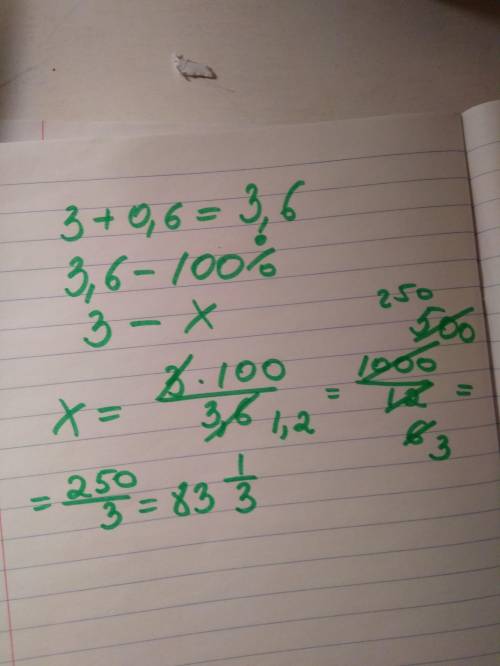 3 + 0,6 = 3,6
3,6 - 100%
3 - x
x = 3 · 100 / 3,6 1,2 = 250 500 1000 / 12 6 3 =
= 250 / 3 = 83 1/3